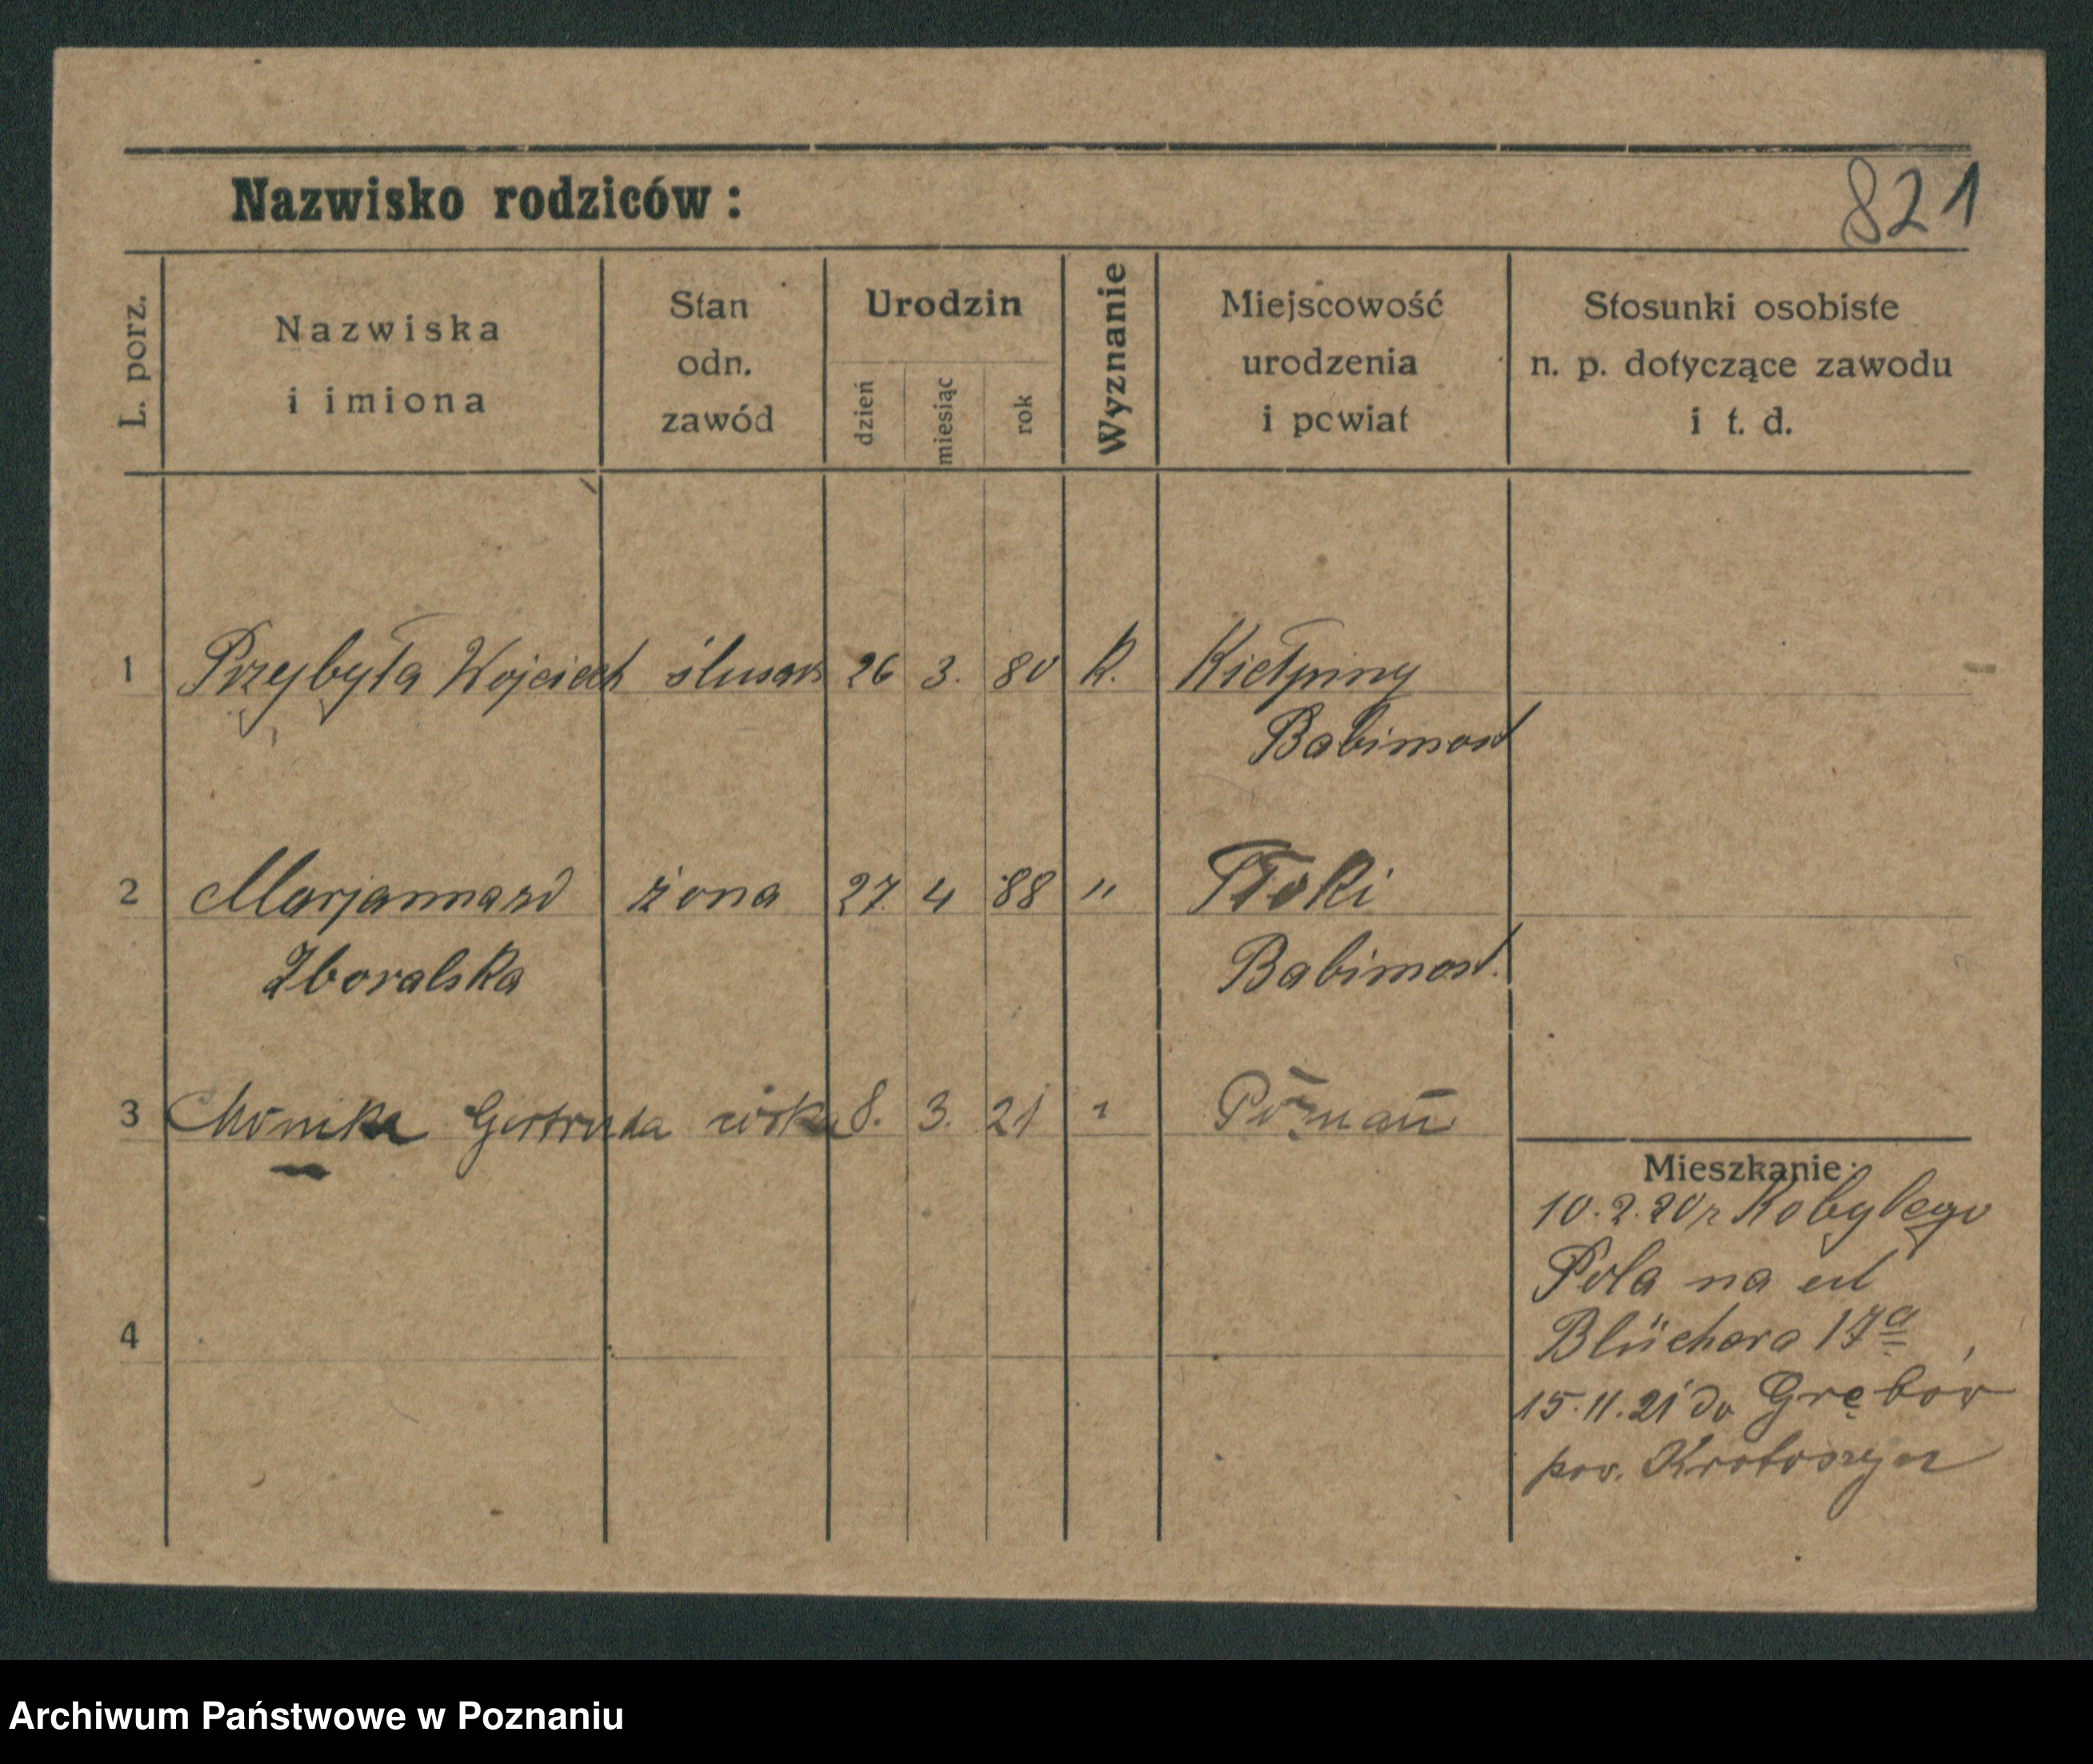 821
Nazwisko rodziców:
L. porz.
Nazwiska
i imiona
Stan
odn.
zawód
Urodzin
dzień
miesiąc
rok
Wyznanie
Miejscowość
urodzenia
i powiat
Stosunki osobiste
n. p. dotyczące zawodu
i t. d.
1 Przybyła Wojciech ślusarz 26 3. 80 k. Kiełpiny
Babimost
2 Marjanna zd żona 27. 4 88 " Tłoki
Zboralska Babimost.
3 Monika Gertruda córka 8. 3. 21 " Poznań
Mieszkanie:
10.2.20 z Kobylego
Pola na ul
Blüchera 17a
15.11.21 do Grębów
pow. Krotoszyn
4
Archiwum Państwowe w Poznaniu